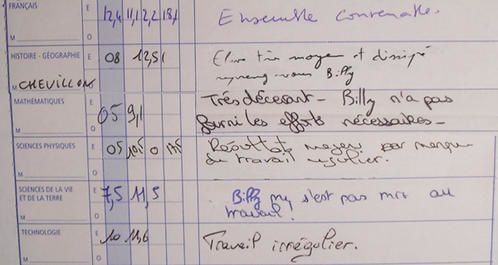 FRANÇAIS E 12,4 11,1 2,2 18,1 Ensemble convenable.
M O
HISTOIRE - GÉOGRAPHIE E 08 12,5 Élève très moyen et dissipé
M CHEVILLON O Billy
MATHÉMATIQUES E 05 9,1 Très décevant - Billy n'a pas
M O fourni les efforts nécessaires -
SCIENCES PHYSIQUES E 05 10,5 0 Résultats moyens par manque
M O de travail régulier.
SCIENCES DE LA VIE E 7,5 11,5 Billy ne s'est pas mis au
ET DE LA TERRE travail!
M O
TECHNOLOGIE E 10 11,6 Travail irrégulier.
M O